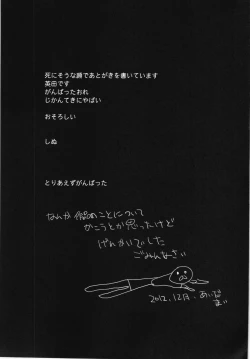 死にそうな顔であとがきを書いています
英田です
がんばったおれ
じかんてきにやばい
おそろしい
しぬ
とりあえずがんばった
なんか 個め ことについて
かこうとか思ったけど
げんかいでした
ごみんなさい
2012.12月. あいだ
まい